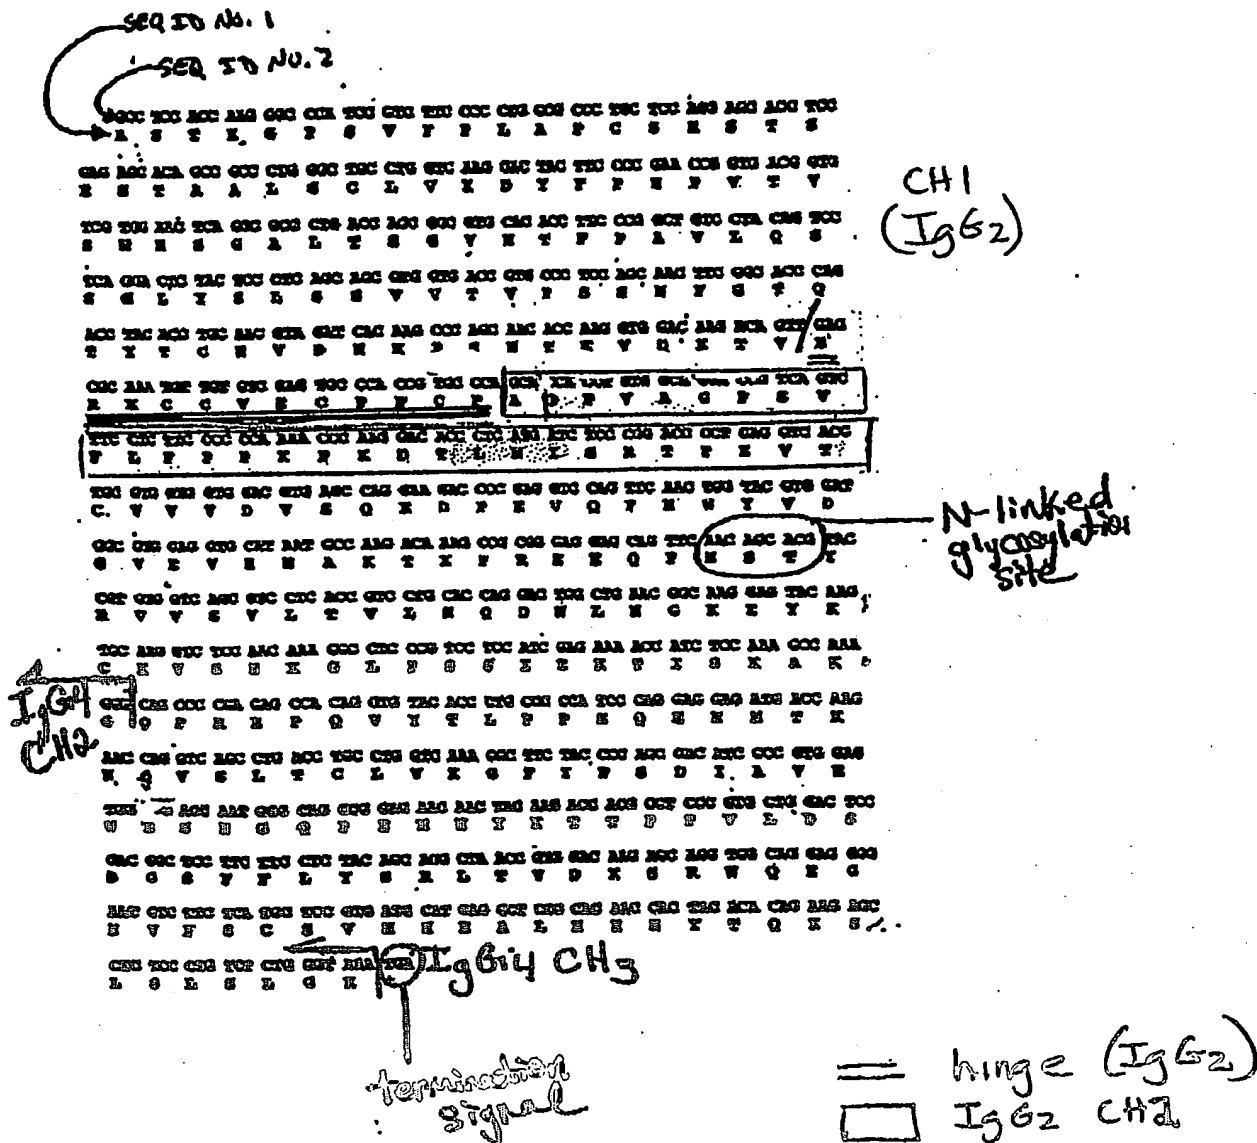 SEQ ID No. 1
SEQ ID NO. 2
GCC TCC ACC AAG GGC CCA TCC GTC TTC CCC CTG GCG CCC TGC TCC AGG AGC ACC TCC
A S T K G P S V F P L A P C S R S T S
GAG AGC ACA GCC GCC CTG GGC TGC CTG GTC AAG GAC TAC TTC CCC GAA CCG GTG ACG GTG
E S T A A L G C L V K D Y F P E P V T V
CH1
(IgG2)
TCG TGG AAC TCA GGC GCC CTG ACC AGC GGC GTG CAC ACC TTC CCG GCT GTC CTA CAG TCC
S W N S G A L T S G V H T F P A V L Q S
TCA GGA CTC TAC TCC CTC AGC AGC GTG GTG ACC GTG CCC TCC AGC AAC TTC GGC ACC CAG
S G L Y S L S S V V T V P S S N F G T Q
ACC TAC ACC TGC AAC GTA GAT CAC AAG CCC AGC AAC ACC AAG GTG GAC AAG ACA GTT GAG
T Y T C N V D H K P S N T K V D K T V E
CGC AAA TGT TGT GTC GAG TGC CCA CCG TGC CCA GCA CCT GTG GCA TCA GTC
R K C C V E C P P C P A P P V A G P S V
TTC CTC TTC CCC CCA AAA CCC AAG GAC ACC CTC ATG ATC TCC CGG ACC CCT GAG GTC ACG
F L F P P K P K D T L M I S R T P E V T
TGC GTG GTG GTG GAC GTG AGC CAG GAA GAC CCC GAG GTC CAG TTC AAC TGG TAC GTG GAT
C V V V D V S Q E D P E V Q F N W Y V D
N-linked
glycosylation
site
GGC GTG GAG GTG CAT AAT GCC AAG ACA AAG CCG CGG GAG GAG CAG TTC AAC AGC ACG TAC
G V E V H N A K T K P R E E Q F N S T Y
CGT GTG GTC AGC GTC CTC ACC GTC CTG CAC CAG GAC TGG CTG AAC GGC AAG GAG TAC AAG
R V V S V L T V L H Q D W L N G K E Y K
TGC AAG GTC TCC AAC AAA GGC CTC CCG TCC TCC ATC GAG AAA ACC ATC TCC AAA GCC AAA
C K V S N K G L P S S I E K T I S K A K
IgG4
CH2
GGG CAG CCC CGA GAG CCA CAG GTG TAC ACC CTG CCC CCA TCC CAG GAG GAG ATG ACC AAG
G Q P R E P Q V Y T L P P S Q E E M T K
AAC CAG GTC AGC CTG ACC TGC CTG GTC AAA GGC TTC TAC CCC AGC GAC ATC GCC GTG GAG
N Q V S L T C L V K G F Y P S D I A V E
TGG AGC AAT GGG CAG CCG GAG AAC AAC TAC AAG ACC ACG CCT CCC GTG CTG GAC TCC
W E S N G Q P E N N Y K T T P P V L D S
GAC GGC TCC TTC TTC CTC TAC AGC AGG CTA ACC GTG GAC AAG AGC AGG TGG CAG GAG GGG
D G S F F L Y S R L T V D K S R W Q E G
AAT GTC TTC TCA TGC TCC GTG ATG CAT GAG GCT CTG CAC AAC CAC TAC ACA CAG AAG AGC
N V F S C S V M H E A L H N H Y T Q K S
CTC TCC CTG TCT CTG GGT AAA TGA IgG4 CH3
L S L S L G K
termination
signal
hinge (IgG2)
IgG2 CH2